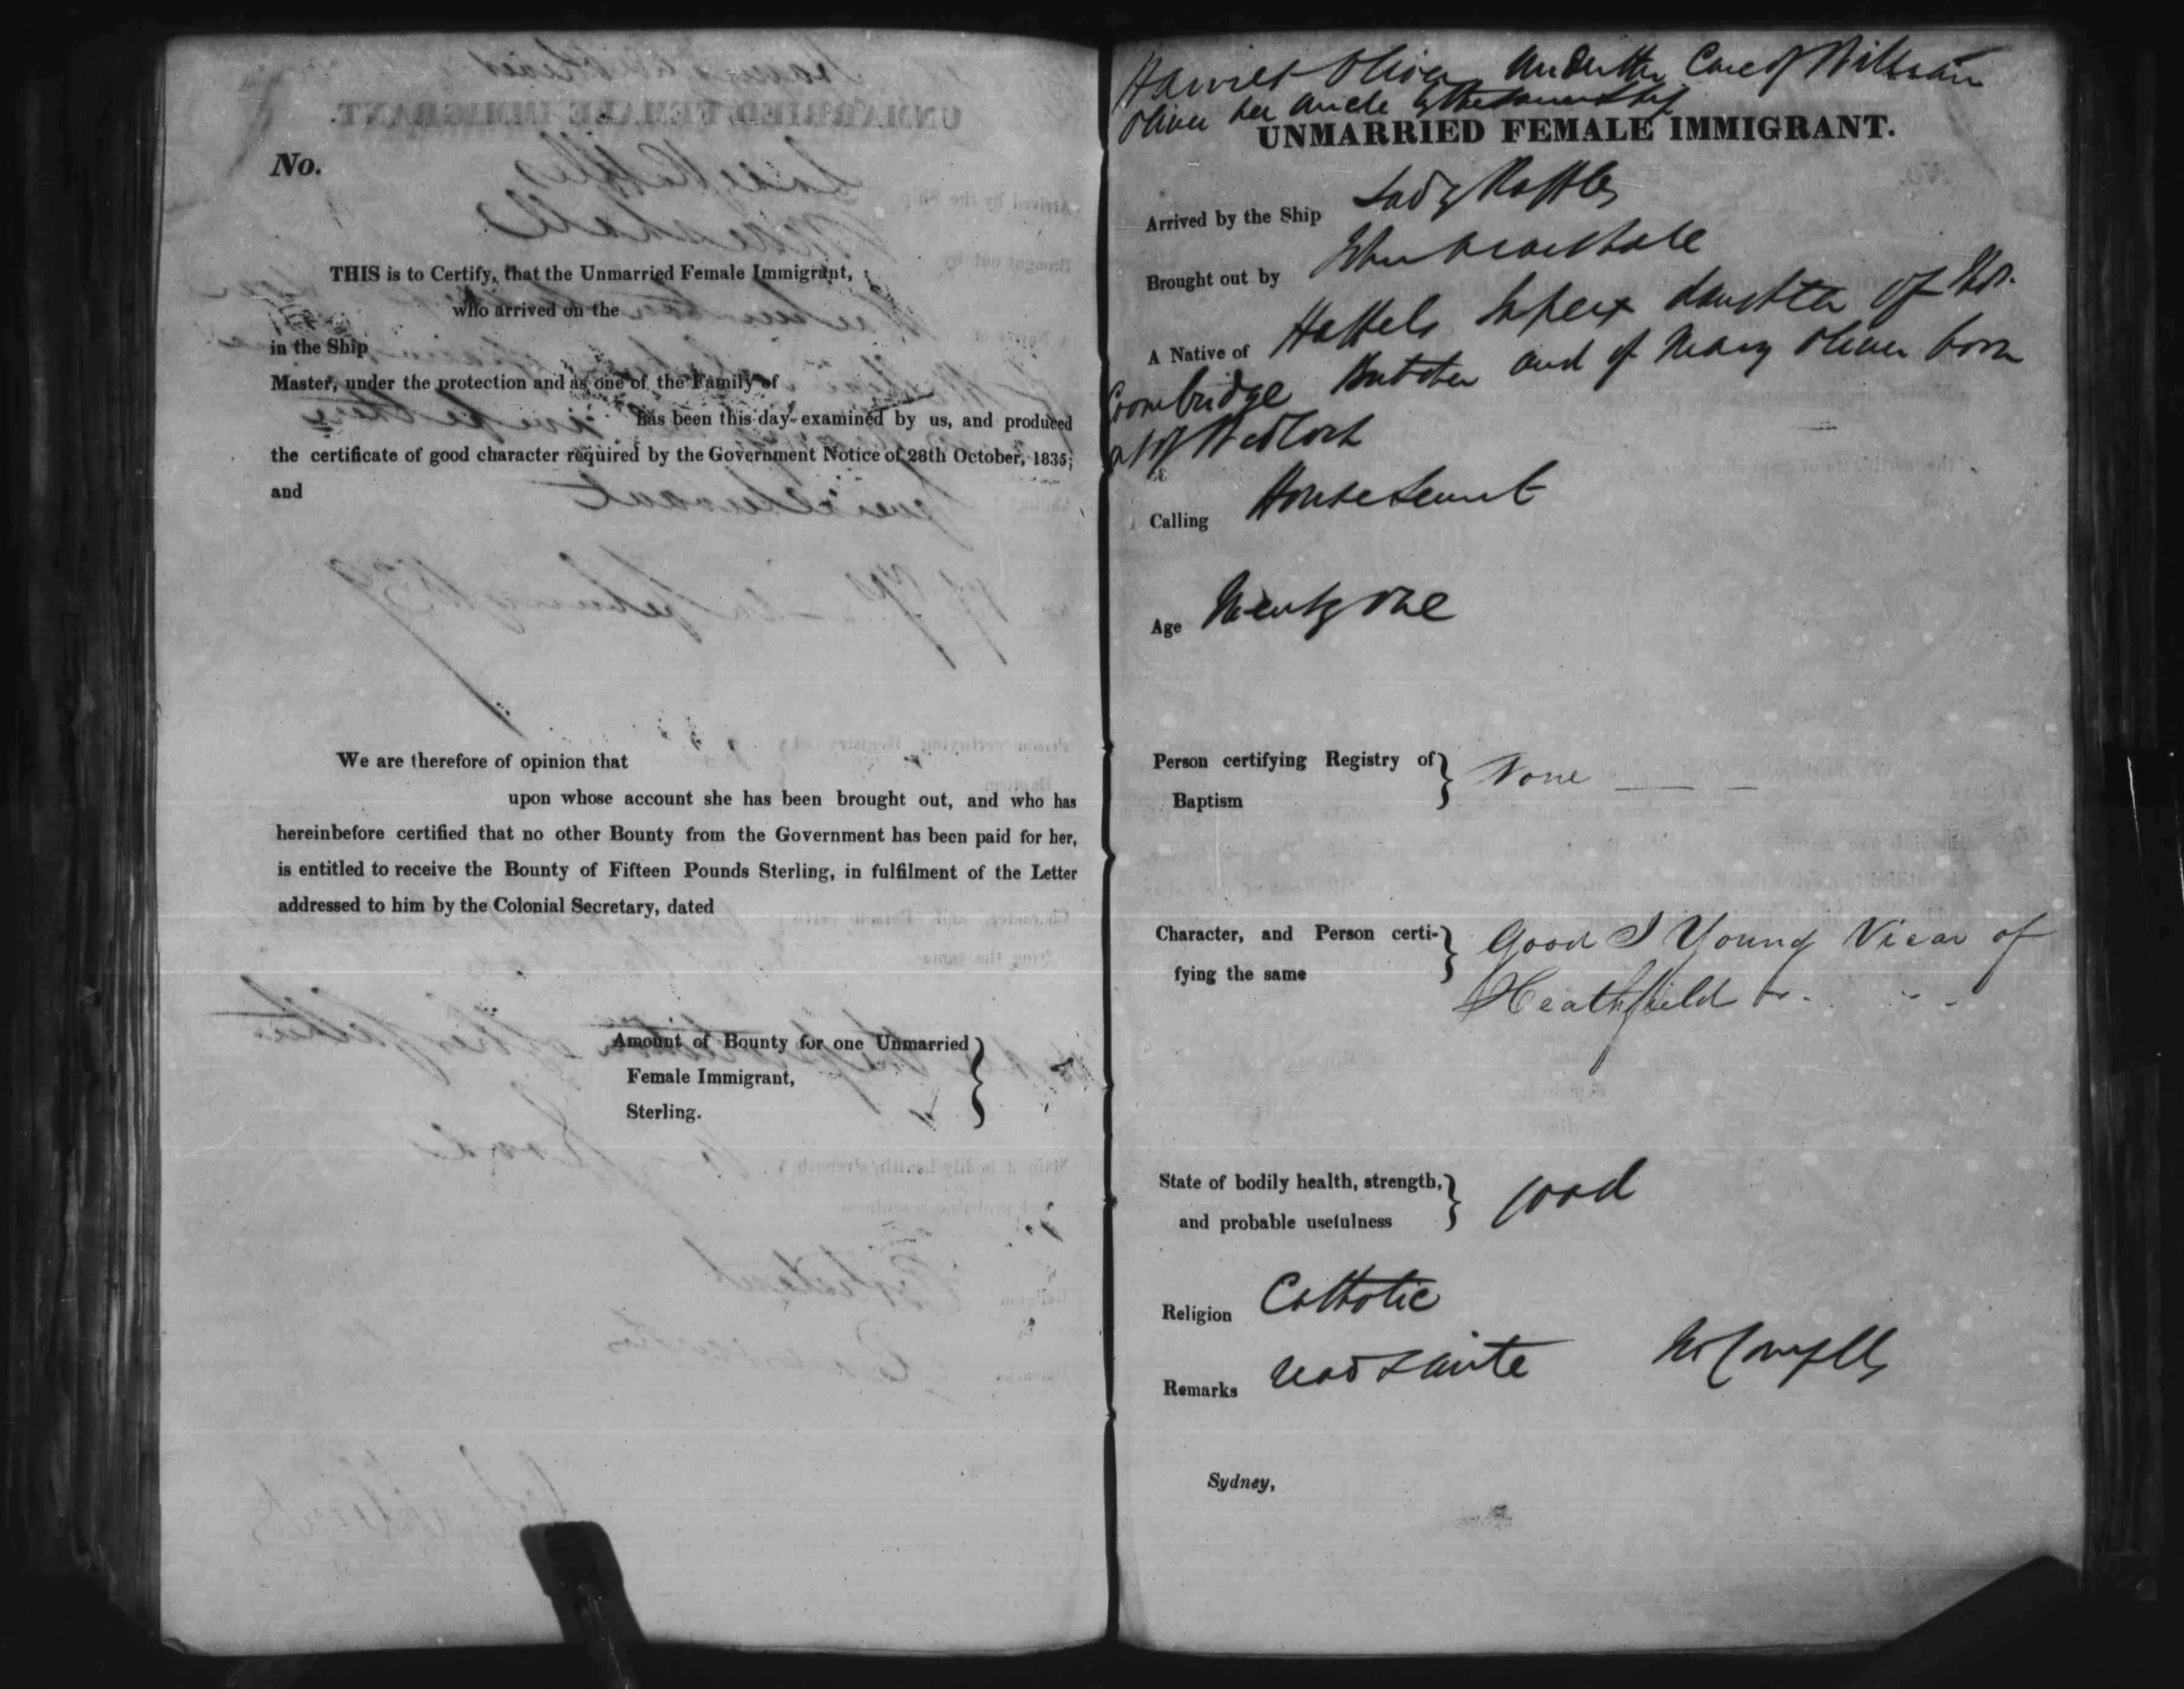 No.
THIS is to Certify, that the Unmarried Female Immigrant,
who arrived on the
in the Ship
Master, under the protection and as one of the Family of
has been this day examined by us, and produced
the certificate of good character required by the Government Notice of 28th October, 1835;
and
We are therefore of opinion that
upon whose account she has been brought out, and who has
hereinbefore certified that no other Bounty from the Government has been paid for her,
is entitled to receive the Bounty of Fifteen Pounds Sterling, in fulfilment of the Letter
addressed to him by the Colonial Secretary, dated
Amount of Bounty for one Unmarried }
Female Immigrant,
Sterling.
Harriet Oliver under the Care of William
Oliver her uncle by the same ship
UNMARRIED FEMALE IMMIGRANT.
Arrived by the Ship Lady Raffles
Brought out by John Marshall
A Native of daughter of
Groombridge Butcher and of Mary Oliver born
out of Wedlock
Calling House Servant
Age Twenty one
Person certifying Registry of } None
Baptism
Character, and Person certi- } Good J Young Vicar of
fying the same Heathfield
State of bodily health, strength, } good
and probable usefulness
Religion Catholic
Remarks read & write
Sydney,